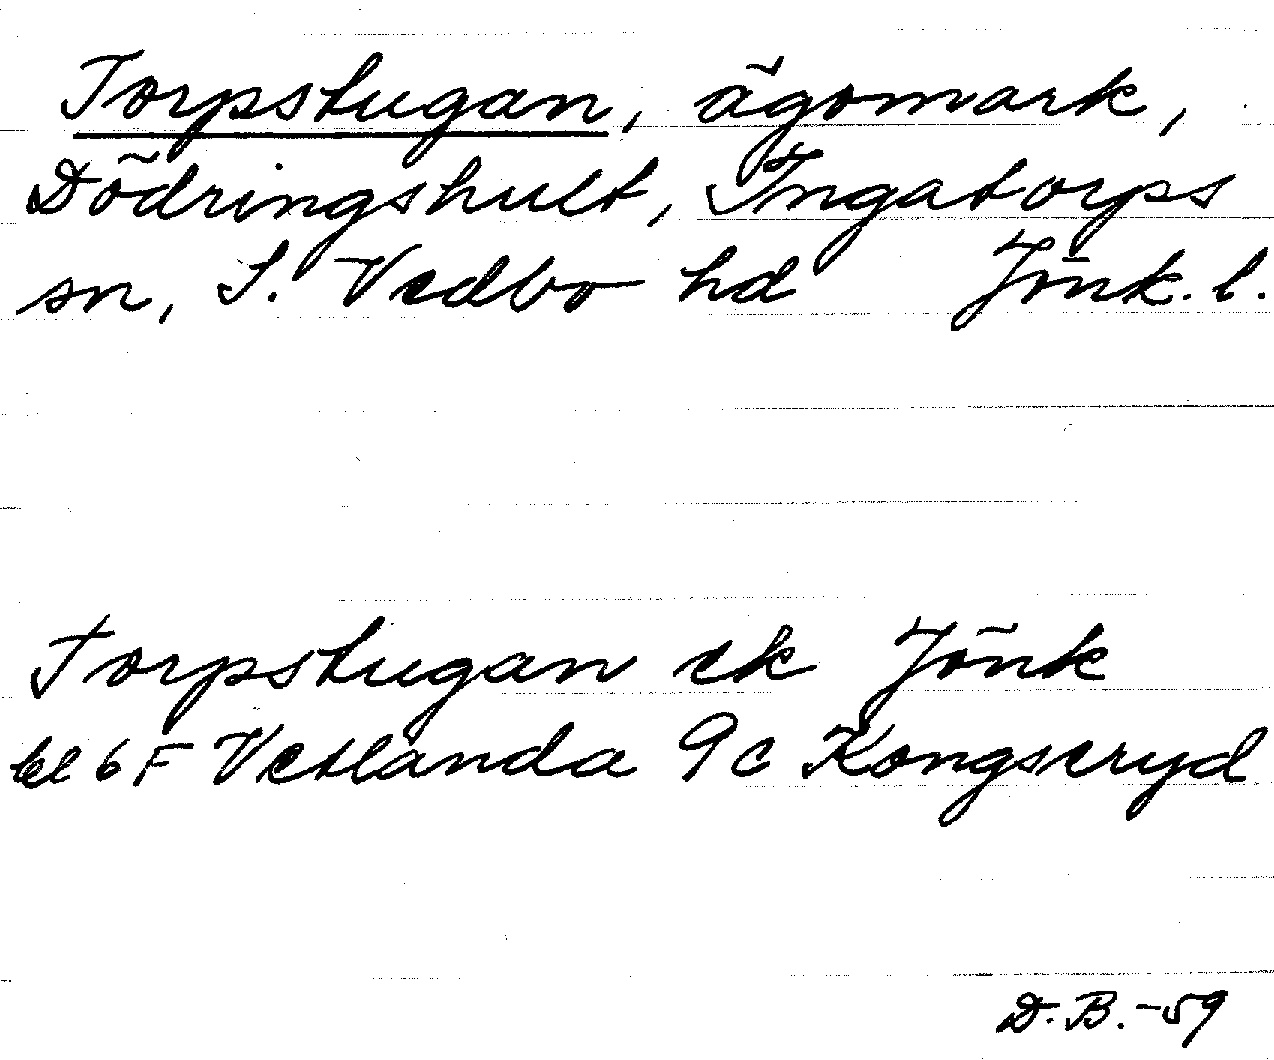 Torpstugan, ägomark,
Dödringshult, Ingatorps
sn, S. Vedbo hd Jönk. l.
Torpstugan ek Jönk
bl 6 F Vetlanda 9c Kongseryd
D. B. -59